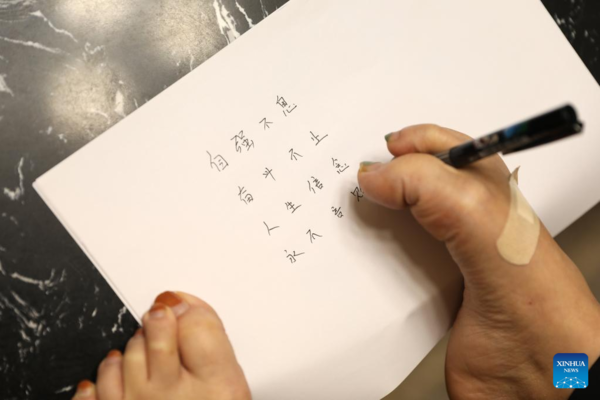 自强不息
奋斗不止
人生信念
永不言
XINHUA
NEWS